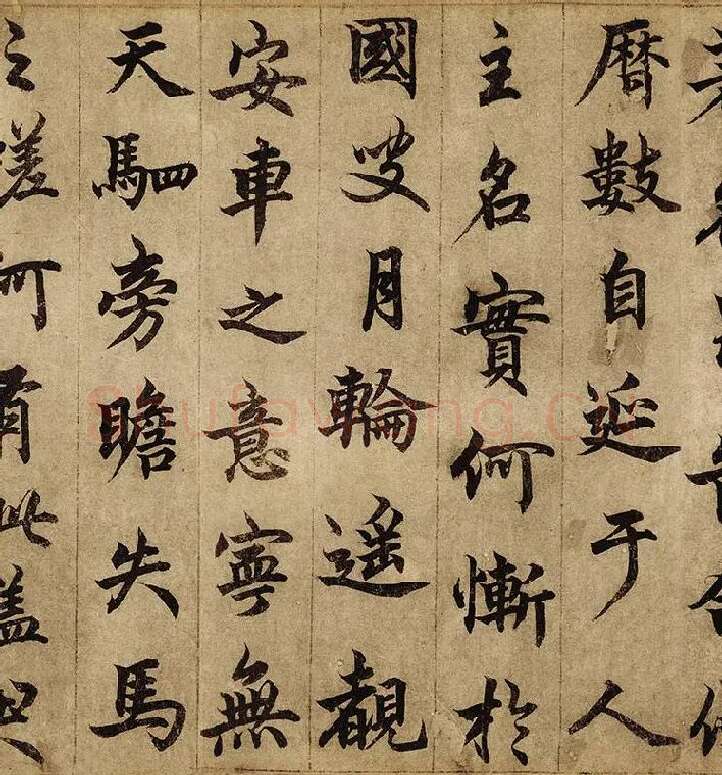 曆數自延于人
主名實何慚於
國叟月輪遥覩
安車之意寧無
天駟旁瞻失馬
之嗟何有此盖